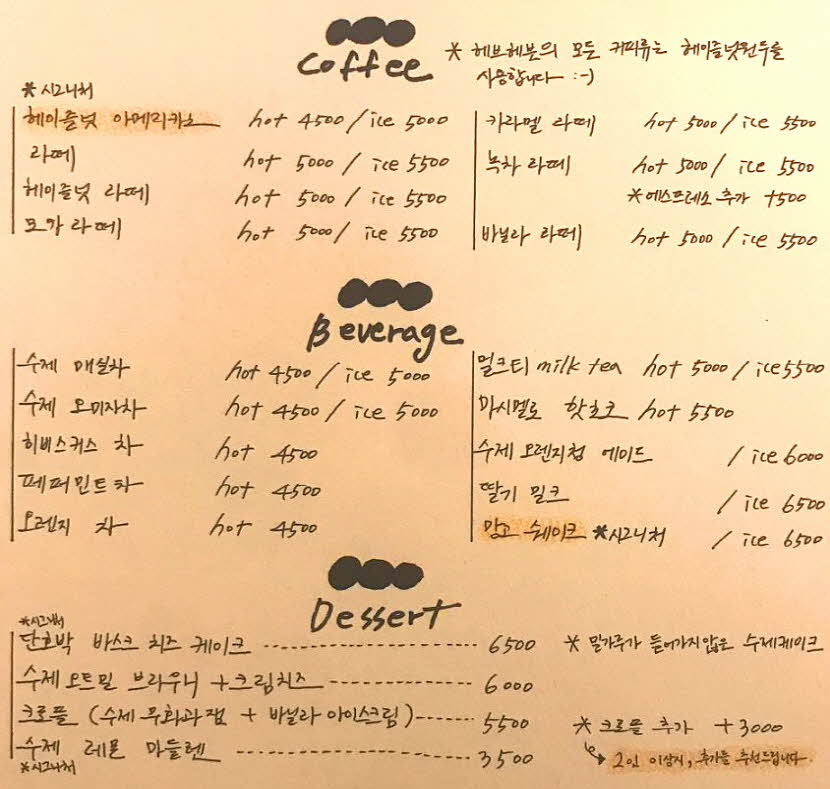 Coffee
* 헤브헤븐의 모든 커피류는 헤이즐넛원두를
사용합니다 :-)
*시그니처
헤이즐넛 아메리카노 hot 4500 / ice 5000
라떼 hot 5000 / ice 5500
헤이즐넛 라떼 hot 5000 / ice 5500
모카 라떼 hot 5000 / ice 5500
카라멜 라떼 hot 5000 / ice 5500
녹차 라떼 hot 5000 / ice 5500
*에스프레소 추가 +500
바닐라 라떼 hot 5000 / ice 5500
Beverage
수제 매실차 hot 4500 / ice 5000
수제 오미자차 hot 4500 / ice 5000
히비스커스 차 hot 4500
페퍼민트 차 hot 4500
오렌지 차 hot 4500
밀크티 milk tea hot 5000 / ice 5500
마시멜로 핫초코 hot 5500
수제 오렌지청 에이드 / ice 6000
딸기 밀크 / ice 6500
망고 쉐이크 *시그니처 / ice 6500
Dessert
*시그니처
단호박 바스크 치즈 케이크 6500
* 밀가루가 들어가지않은 수제케이크
수제 오트밀 브라우니 + 크림치즈 6000
크로플 (수제 무화과잼 + 바닐라 아이스크림) 5500
* 크로플 추가 +3000
수제 레몬 마들렌 3500
*시그니처
2인 이상시, 추가를 추천드립니다.